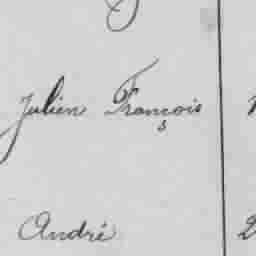 Julien François
André